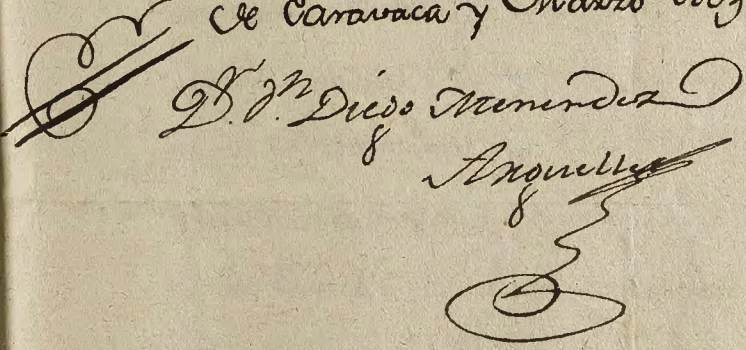 de Caravaca y Marzo
Dr. Dn. Diego Menendez
Arguelles